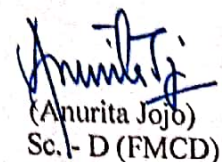 (Anurita Jojo)
Sc. - D (FMCD)